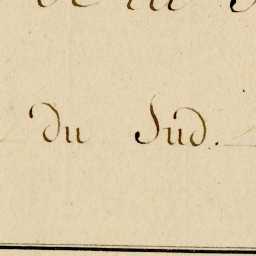 du Sud.